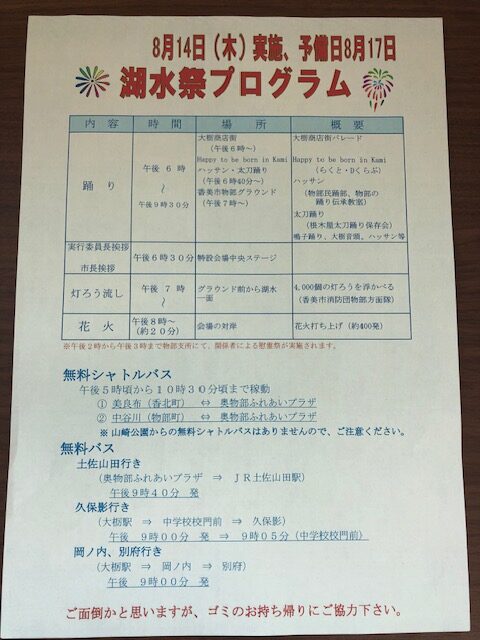 8月14日（木）実施、予備日8月17日
湖水祭プログラム
内 容 時 間 場 所 概 要
踊 り
午後 6 時
～
午後9時30分
大栃商店街
（午後6時～）
Happy to be born in Kami
ハッサン・太刀踊り
（午後6時40分～）
香美市物部グラウンド
（午後7時～）
大栃商店街パレード
Happy to be born in Kami
（らくと・Dくらぶ）
ハッサン
（物部民踊部、物部の
踊り伝承教室）
太刀踊り
（根木屋太刀踊り保存会）
鳴子踊り、大栃音頭、ハッサン等
実行委員長挨拶
市長挨拶
午後6時30分 特設会場中央ステージ
灯ろう流し
午後 7 時
～
グラウンド前から湖水
一面
4,000個の灯ろうを浮かべる
（香美市消防団物部方面隊）
花 火
午後8時～
（約20分）
会場の対岸 花火打ち上げ（約400発）
※午後2時から午後3時まで物部支所にて、関係者による慰霊祭が実施されます。
無料シャトルバス
午後5時頃から10時30分頃まで稼動
① 美良布（香北町） ⇔ 奥物部ふれあいプラザ
② 中谷川（物部町） ⇔ 奥物部ふれあいプラザ
※ 山崎公園からの無料シャトルバスはありませんので、ご注意ください。
無料バス
土佐山田行き
（奥物部ふれあいプラザ ⇒ JR土佐山田駅）
午後9時40分 発
久保影行き
（大栃駅 ⇒ 中学校校門前 ⇒ 久保影）
午後 9時00分 発 ⇒ 9時05分（中学校校門前）
岡ノ内、別府行き
（大栃駅 ⇒ 岡ノ内 ⇒ 別府）
午後 9時00分 発
ご面倒かと思いますが、ゴミのお持ち帰りにご協力下さい。